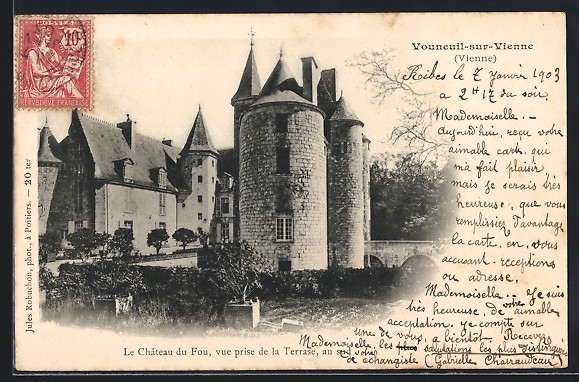 Vouneuil-sur-Vienne
(Vienne)
10
REPUBLIQUE FRANÇAISE
Ribes le 7 Janvir 1903
a 2 H 17 du soir
Mademoiselle. -
Aujourd'hui, reçu votre
aimable carte. qui
ma fait plaisir
mais je serais très
heureuse, que vous
remplissiez d'avantage
la carte, en, vous
accusant - réceptions
ou adresse,
Mademoiselle. Je suis
très heureuse, de votre aimable,
acceptation, je compte sur
une de vous, a bientôt. Recevez
Mademoiselle, les salutations les plus distinguées
de échangiste (Gabrielle Chairaudeau)
Le Château du Fou, vue prise de la Terrasse, au
Jules Robuchon, phot., à Poitiers. — 20 ter